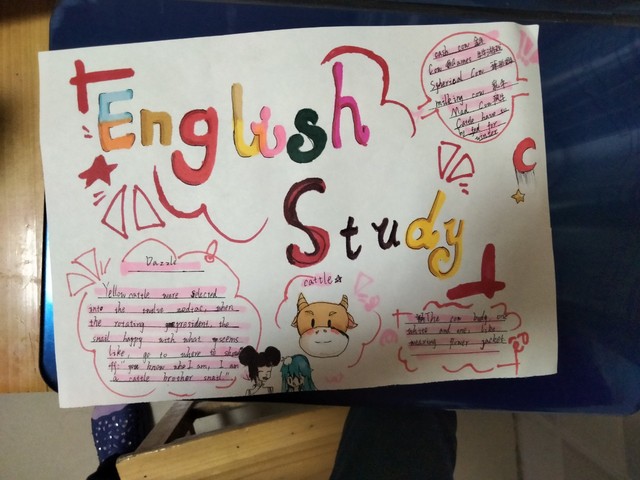 English
Study
cash cow
Cow Games
Spherical Cow
milking cow
Mad Cow
Cattle have to
be fed for
winter
C
Dazzle
Yellow cattle were selected
into the twelve zodiac, when
the rotating president, the
snail happy with what seems
like, go to where to show
off: "you know who I am, I am
a cattle brother snail"
cattle☆
The cow body
white and one, like
wearing flower jacket